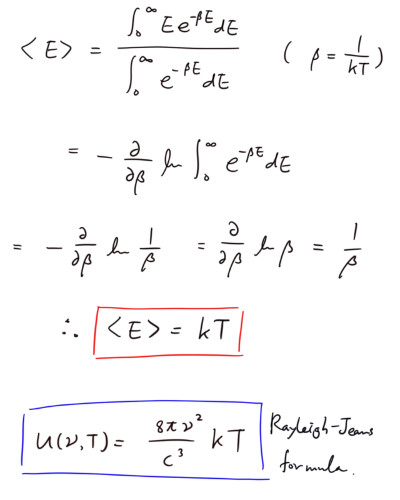 <E> = ∫₀^∞ E e^{-βE} dE / ∫₀^∞ e^{-βE} dE ( β = 1/kT )
= - ∂/∂β ln ∫₀^∞ e^{-βE} dE
= - ∂/∂β ln 1/β = ∂/∂β ln β = 1/β
∴ <E> = kT
u(ν,T) = 8πν²/c³ kT Rayleigh-Jeans
formula.